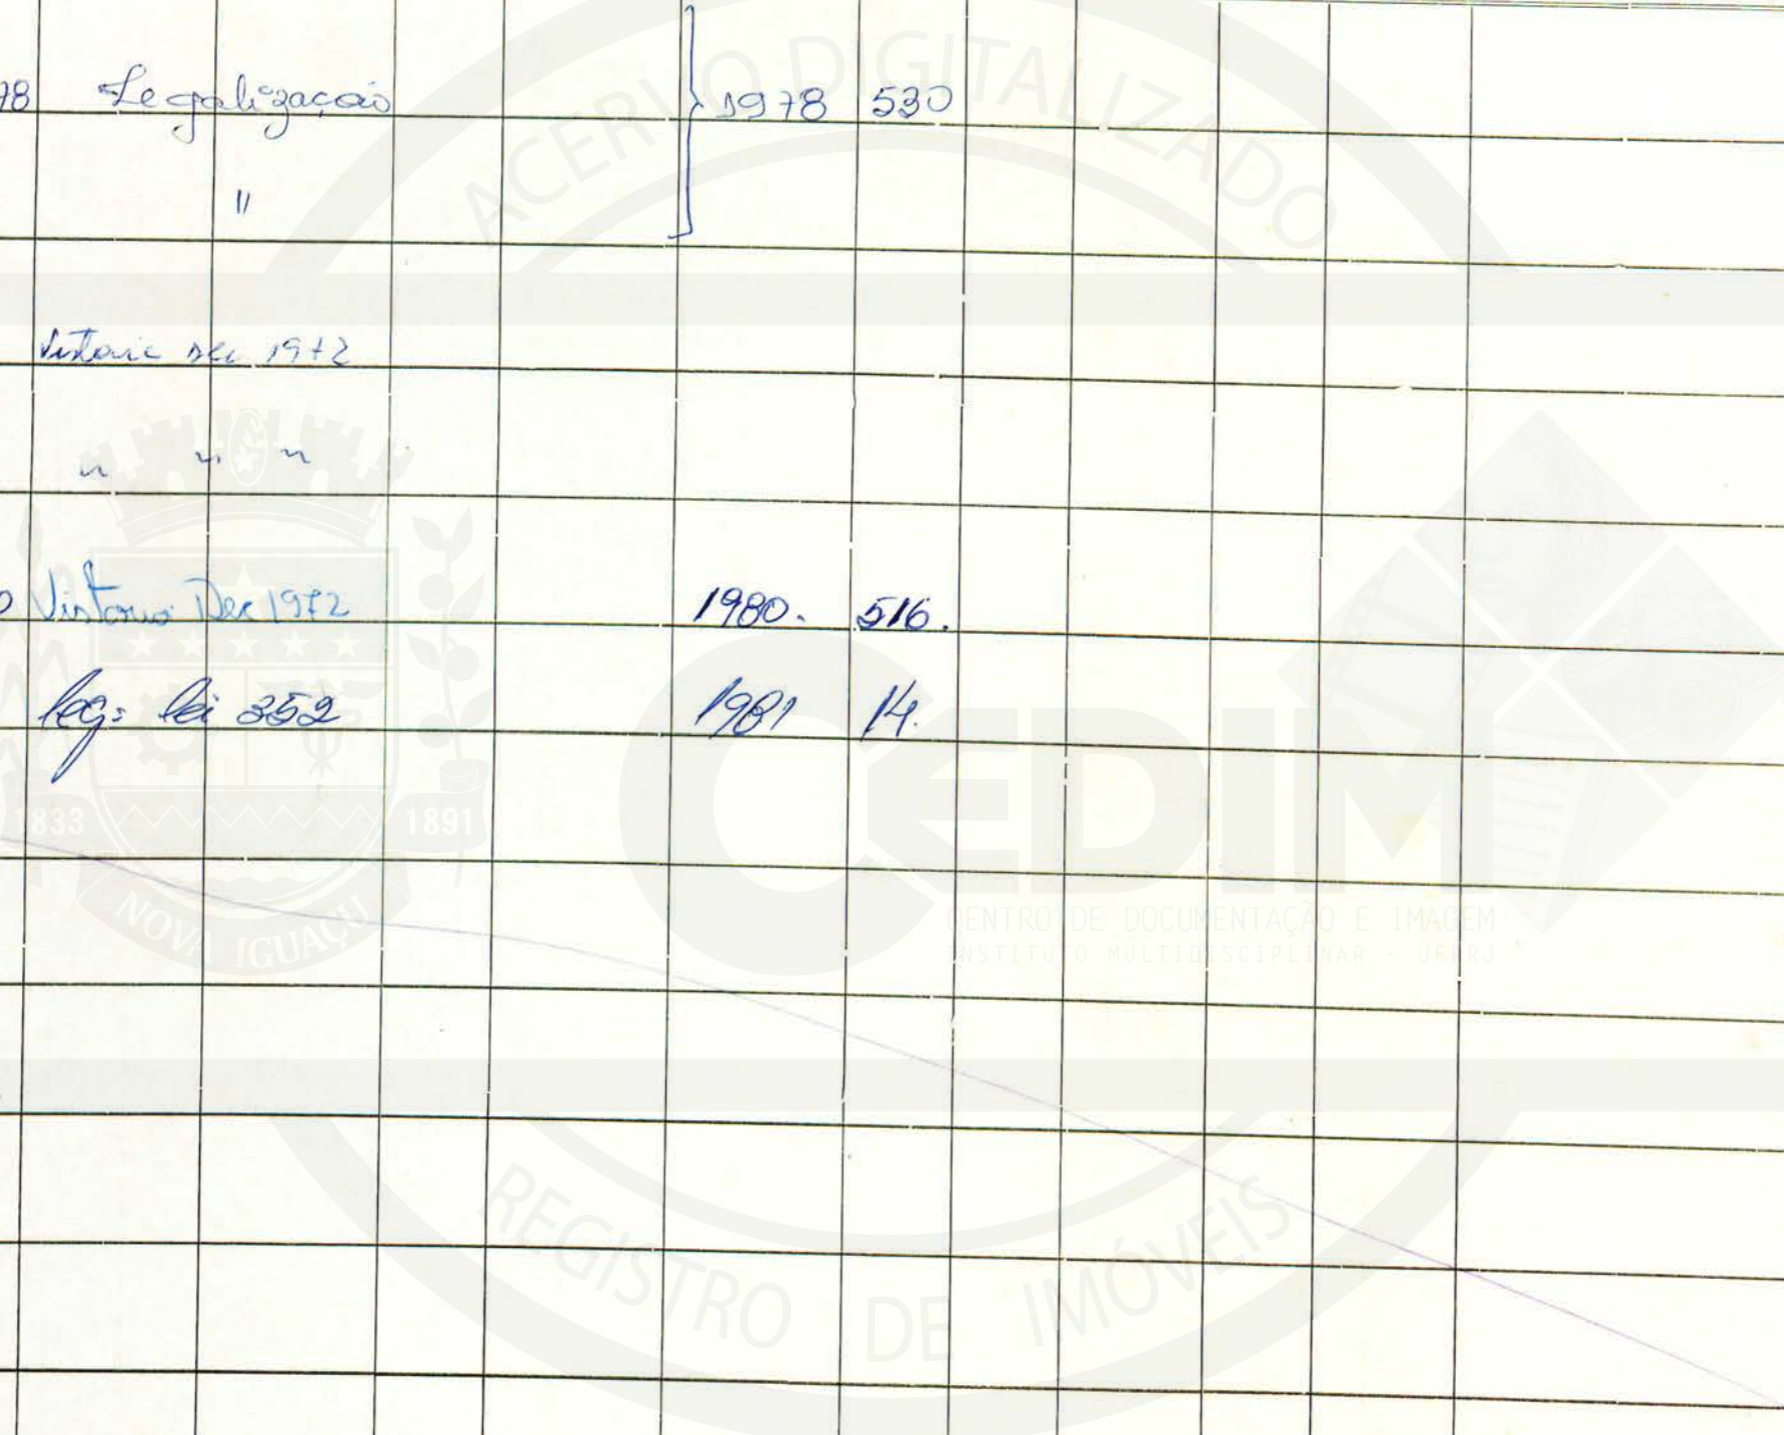 78 Legalização } 1978 530
"
Vistoria Dec 1972
" " "
0 Vistoria Dec 1972 1980. 516.
leg= lei 352 1981 14.
ACERVO DIGITALIZADO
1833 1891
NOVA IGUAÇU
CEDIM
CENTRO DE DOCUMENTAÇÃO E IMAGEM
INSTITUTO MULTIDISCIPLINAR - UFRRJ
REGISTRO DE IMÓVEIS